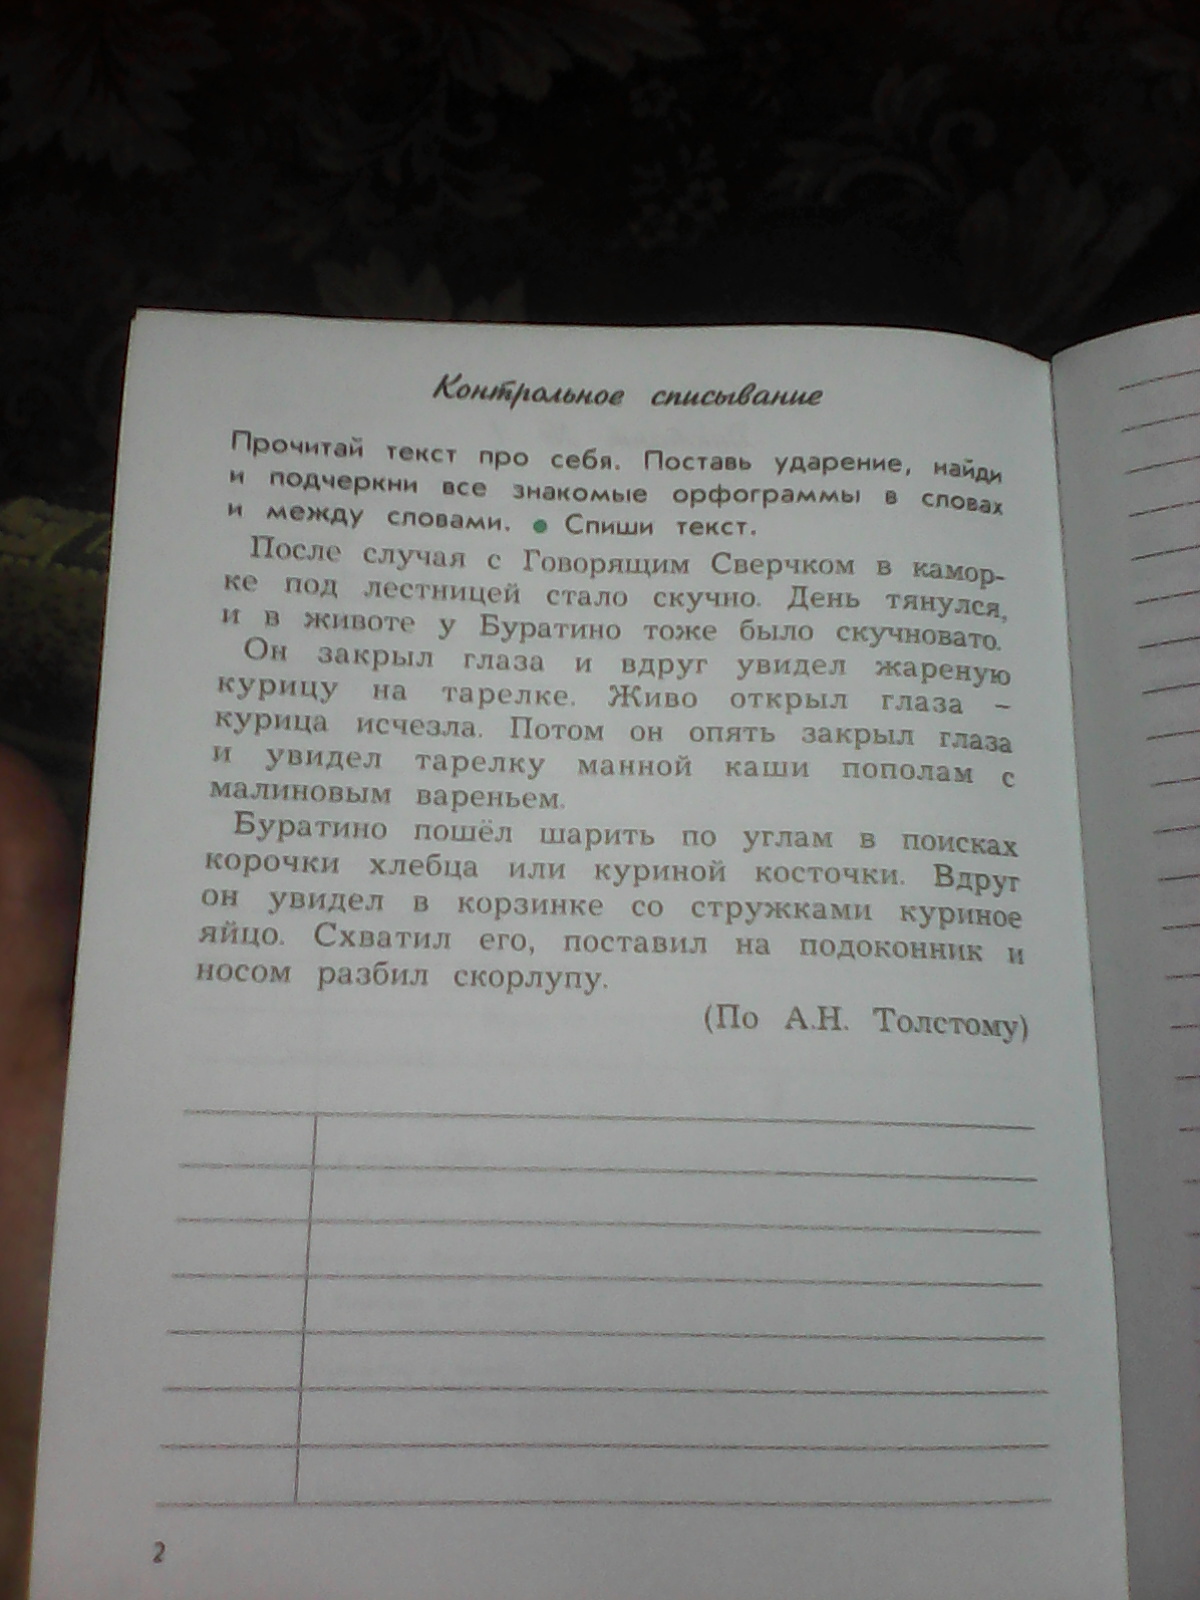 Контрольное списывание
Прочитай текст про себя. Поставь ударение, найди
и подчеркни все знакомые орфограммы в словах
и между словами. ● Спиши текст.
После случая с Говорящим Сверчком в камор-
ке под лестницей стало скучно. День тянулся,
и в животе у Буратино тоже было скучновато.
Он закрыл глаза и вдруг увидел жареную
курицу на тарелке. Живо открыл глаза –
курица исчезла. Потом он опять закрыл глаза
и увидел тарелку манной каши пополам с
малиновым вареньем.
Буратино пошёл шарить по углам в поисках
корочки хлебца или куриной косточки. Вдруг
он увидел в корзинке со стружками куриное
яйцо. Схватил его, поставил на подоконник и
носом разбил скорлупу.
(По А.Н. Толстому)
2